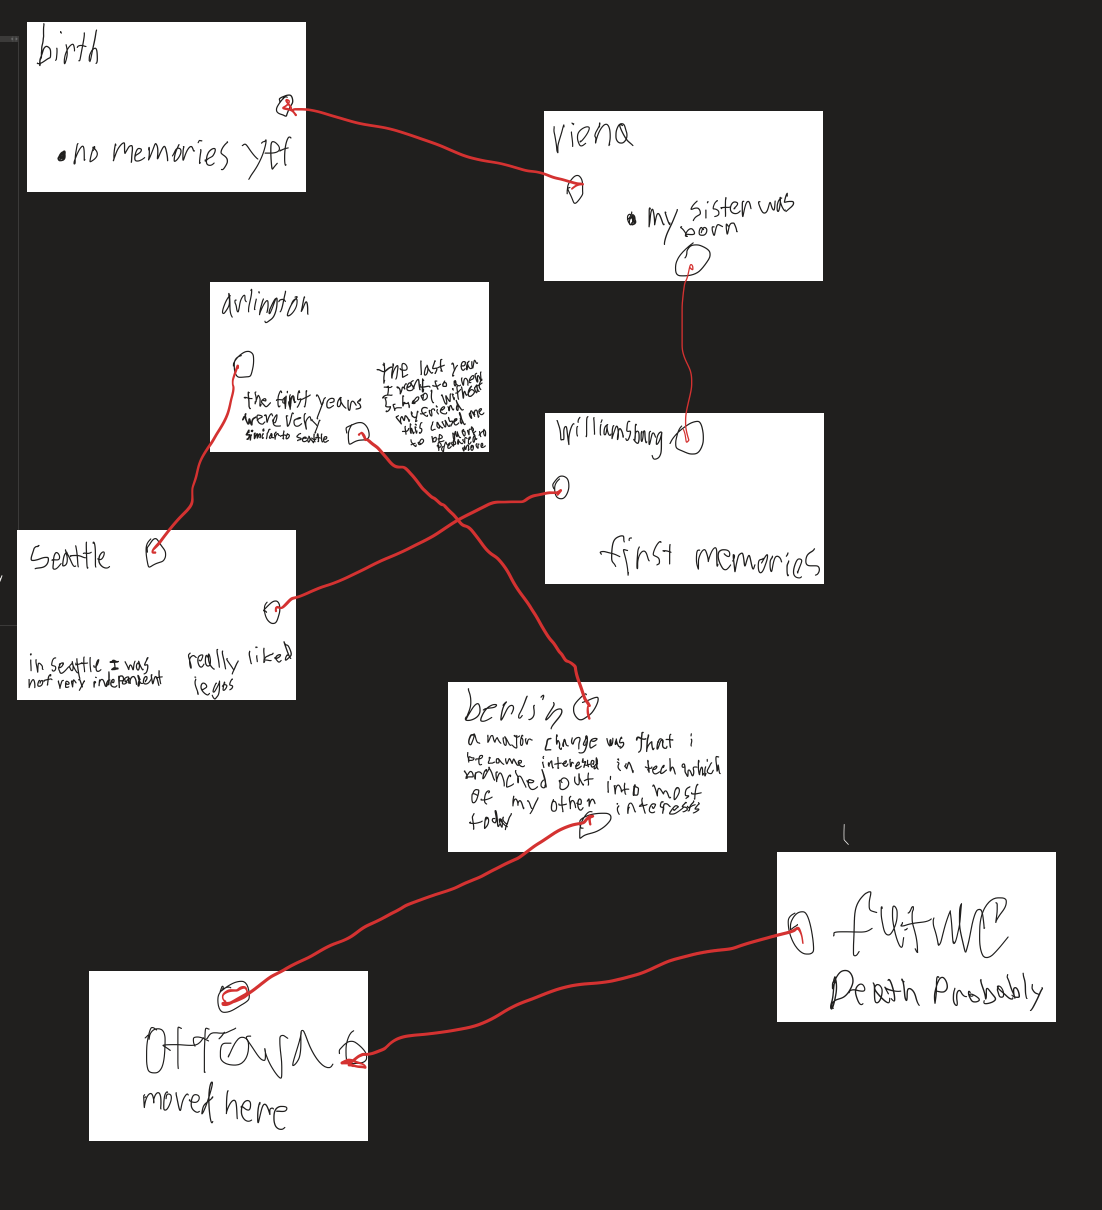 birth
• no memories yet
viena
• my sister was
born
arlington
the first years
were very
similar to seattle
the last year
I went to a new
school without
my friend
this caused me
to be more
prepared to
move
williamsburg
first memories
Seattle
in seattle I was
not very indepentent
really liked
legos
berlin
a major change was that i
became interested in tech which
branched out into most
of my other interests
today
Ottawa
moved here
future
Death Probably